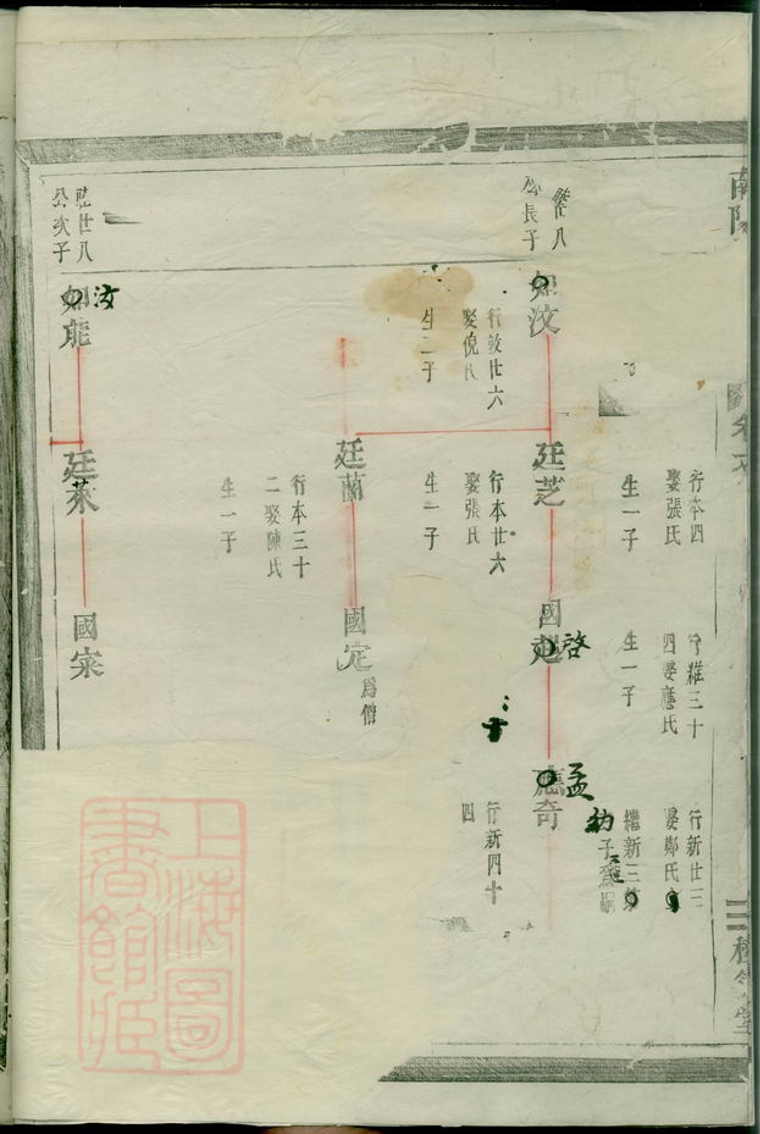 南陽
卷
行本四
娶張氏
生一子
行雍三十
四娶應氏
生一子
行新廿三
娶鄭氏
繼新三弟
納
子
僚廿八
公長子
如汶
行敦廿六
娶倪氏
生二子
廷芝
行本廿六
娶張氏
生一子
國起
啓
應奇
孟
行新四十
四
廷蘭
行本三十
二娶陳氏
生一子
國定
爲僧
廿八
公次子
如能
汝
廷萊
國寀
上海圖
書館藏